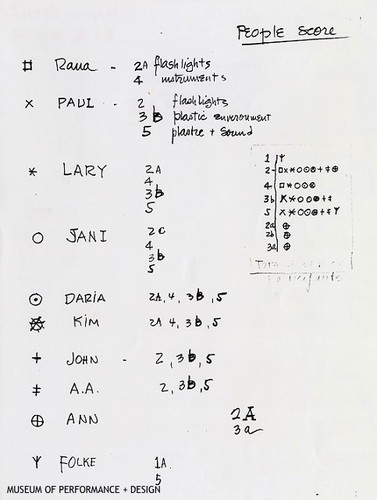 People Score
Rana - 2A flashlights
4 instruments
x PAUL - 2 flashlights
3b plastic environment
5 plastic + sound
* LARY 2A
4
3b
5
○ JANI 2C
4
3b
5
⊙ DARIA 2A, 4, 3b, 5
KIM 2A 4, 3b, 5
+ JOHN - 2, 3b, 5
‡ A.A. 2, 3b, 5
⊕ ANN 2A
3a
Ψ FOLKE 1A.
5
1 Ψ
2 - □ x * ○ ⊙ ⊛ + ‡ ⊕
4 □ * ○ ⊙ ⊛
3b x * ○ ⊙ ⊛ + ‡
5 x * ○ ⊙ ⊛ + ‡ Ψ
2a ⊕
2b ⊕
3a ⊕
MUSEUM OF PERFORMANCE + DESIGN